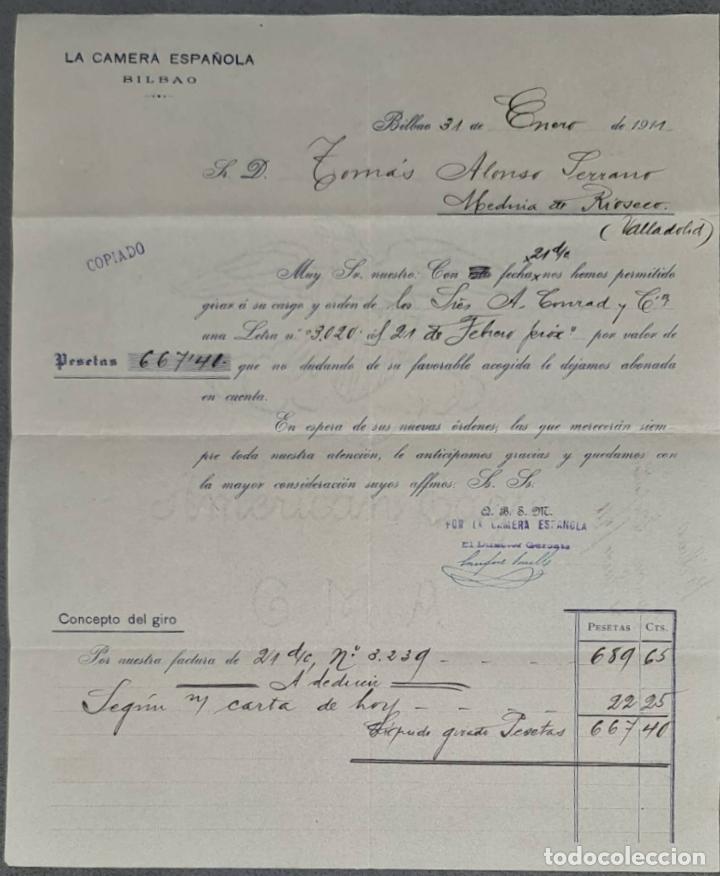 LA CAMERA ESPAÑOLA
BILBAO
Bilbao 31 de Enero de 1911
Sr. D. Tomás Alonso Serrano
Medina de Rioseco.
(Valladolid)
COPIADO
x 21 d/c
Muy Sr. nuestro: Con fecha x nos hemos permitido
girar á su cargo y orden de los Sres A. Conrad y Cia
una Letra n.º 3,020 al 21 de Febrero próxº por valor de
Pesetas 667'40- que no dudando de su favorable acogida le dejamos abonada
en cuenta.
En espera de sus nuevas órdenes, las que merecerán siem-
pre toda nuestra atención, le anticipamos gracias y quedamos con
la mayor consideración suyos affmos. Ss. Ss.
Q. B. S. M.
POR LA CAMERA ESPAÑOLA
El Director Gerente
Concepto del giro
PESETAS CTS.
Por nuestra factura de 21 d/c, Nº 3.239 - - - - 689 65
A deducir
Según n/ carta de hoy - - - - 22 25
Líquido girado Pesetas 667 40
todocoleccion